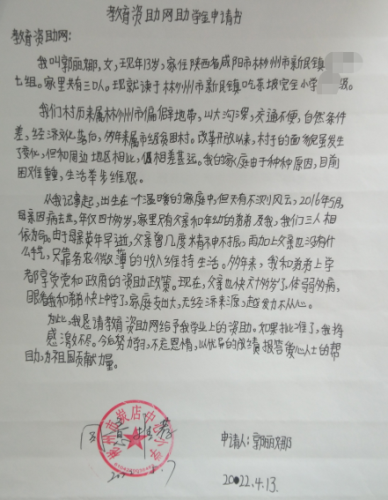 教育资助网助学金申请书
教育资助网:
我叫郭丽娜,女,现年13岁,家住陕西省咸阳市彬州市新民镇
七组。家里共有三口人。现就读于彬州市新民镇 完全小学 级。
我们村历来属彬州市偏僻地带,山大沟深,交通不便,自然条件
差,经济 ,多年来属市级贫困村。改革开放以来,村子的面貌虽发生
了变化,但和周边地区相比,仍相差甚远。我的家庭由于种种原因,目前
困难重重,生活举步维艰。
从我记事起,出生在一个温暖的家庭中,但天有不测风云,2016年5月,
母亲因病去世,年仅四十 岁,家里只有父亲和年幼的弟弟及我,我们三人相
依为命。由于母亲英年早逝,父亲曾几度精神不振,再加上父亲也没有什
么手艺,只靠务农微薄的收入维持生活。多年来,我和弟弟上学
都享受党和政府的资助政策。现在,父亲也快 岁了,体弱多病,
眼看我和弟弟快上中学了,家庭支出大,无经济来源,越发力不从心。
为此,我恳请教育资助网给予我学业上的资助。如果批准了,我将
感激不尽。今后努力学习,不忘恩情,以优异的成绩报答爱心人士的帮
助,为祖国贡献力量。
同意
申请人:郭丽娜
2022.4.13.